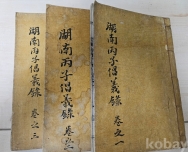 湖南丙子倡義錄 卷之一
湖南丙子倡義錄 卷之二
湖南丙子倡義錄 卷之三
kobay